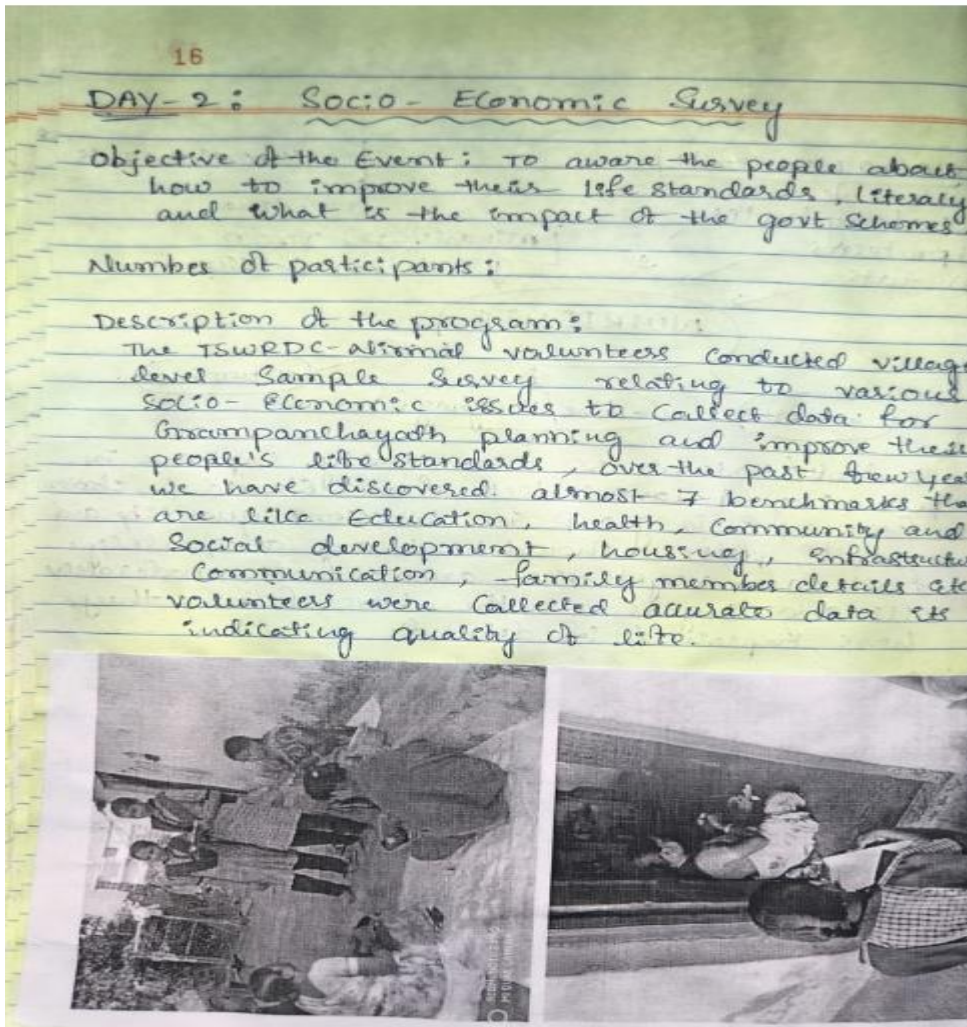 16
DAY-2: Socio-Economic Survey
Objective of the Event: To aware the people about
how to improve their life standards, Literaly
and what is the impact of the govt Schemes
Number of participants:
Description of the program:
The TSWRDC-Nirmal volunteers conducted villag
level Sample Survey relating to various
Socio-Economic issues to Collect data for
Grampanchayath planning and improve their
people's life standards, over the past few yea
we have discovered almost 7 benchmarks tha
are like Education, health, Community and
Social development, housing, infrastructu
Communication, family member details etc
volunteers were Collected accurate data its
indicating quality of life.